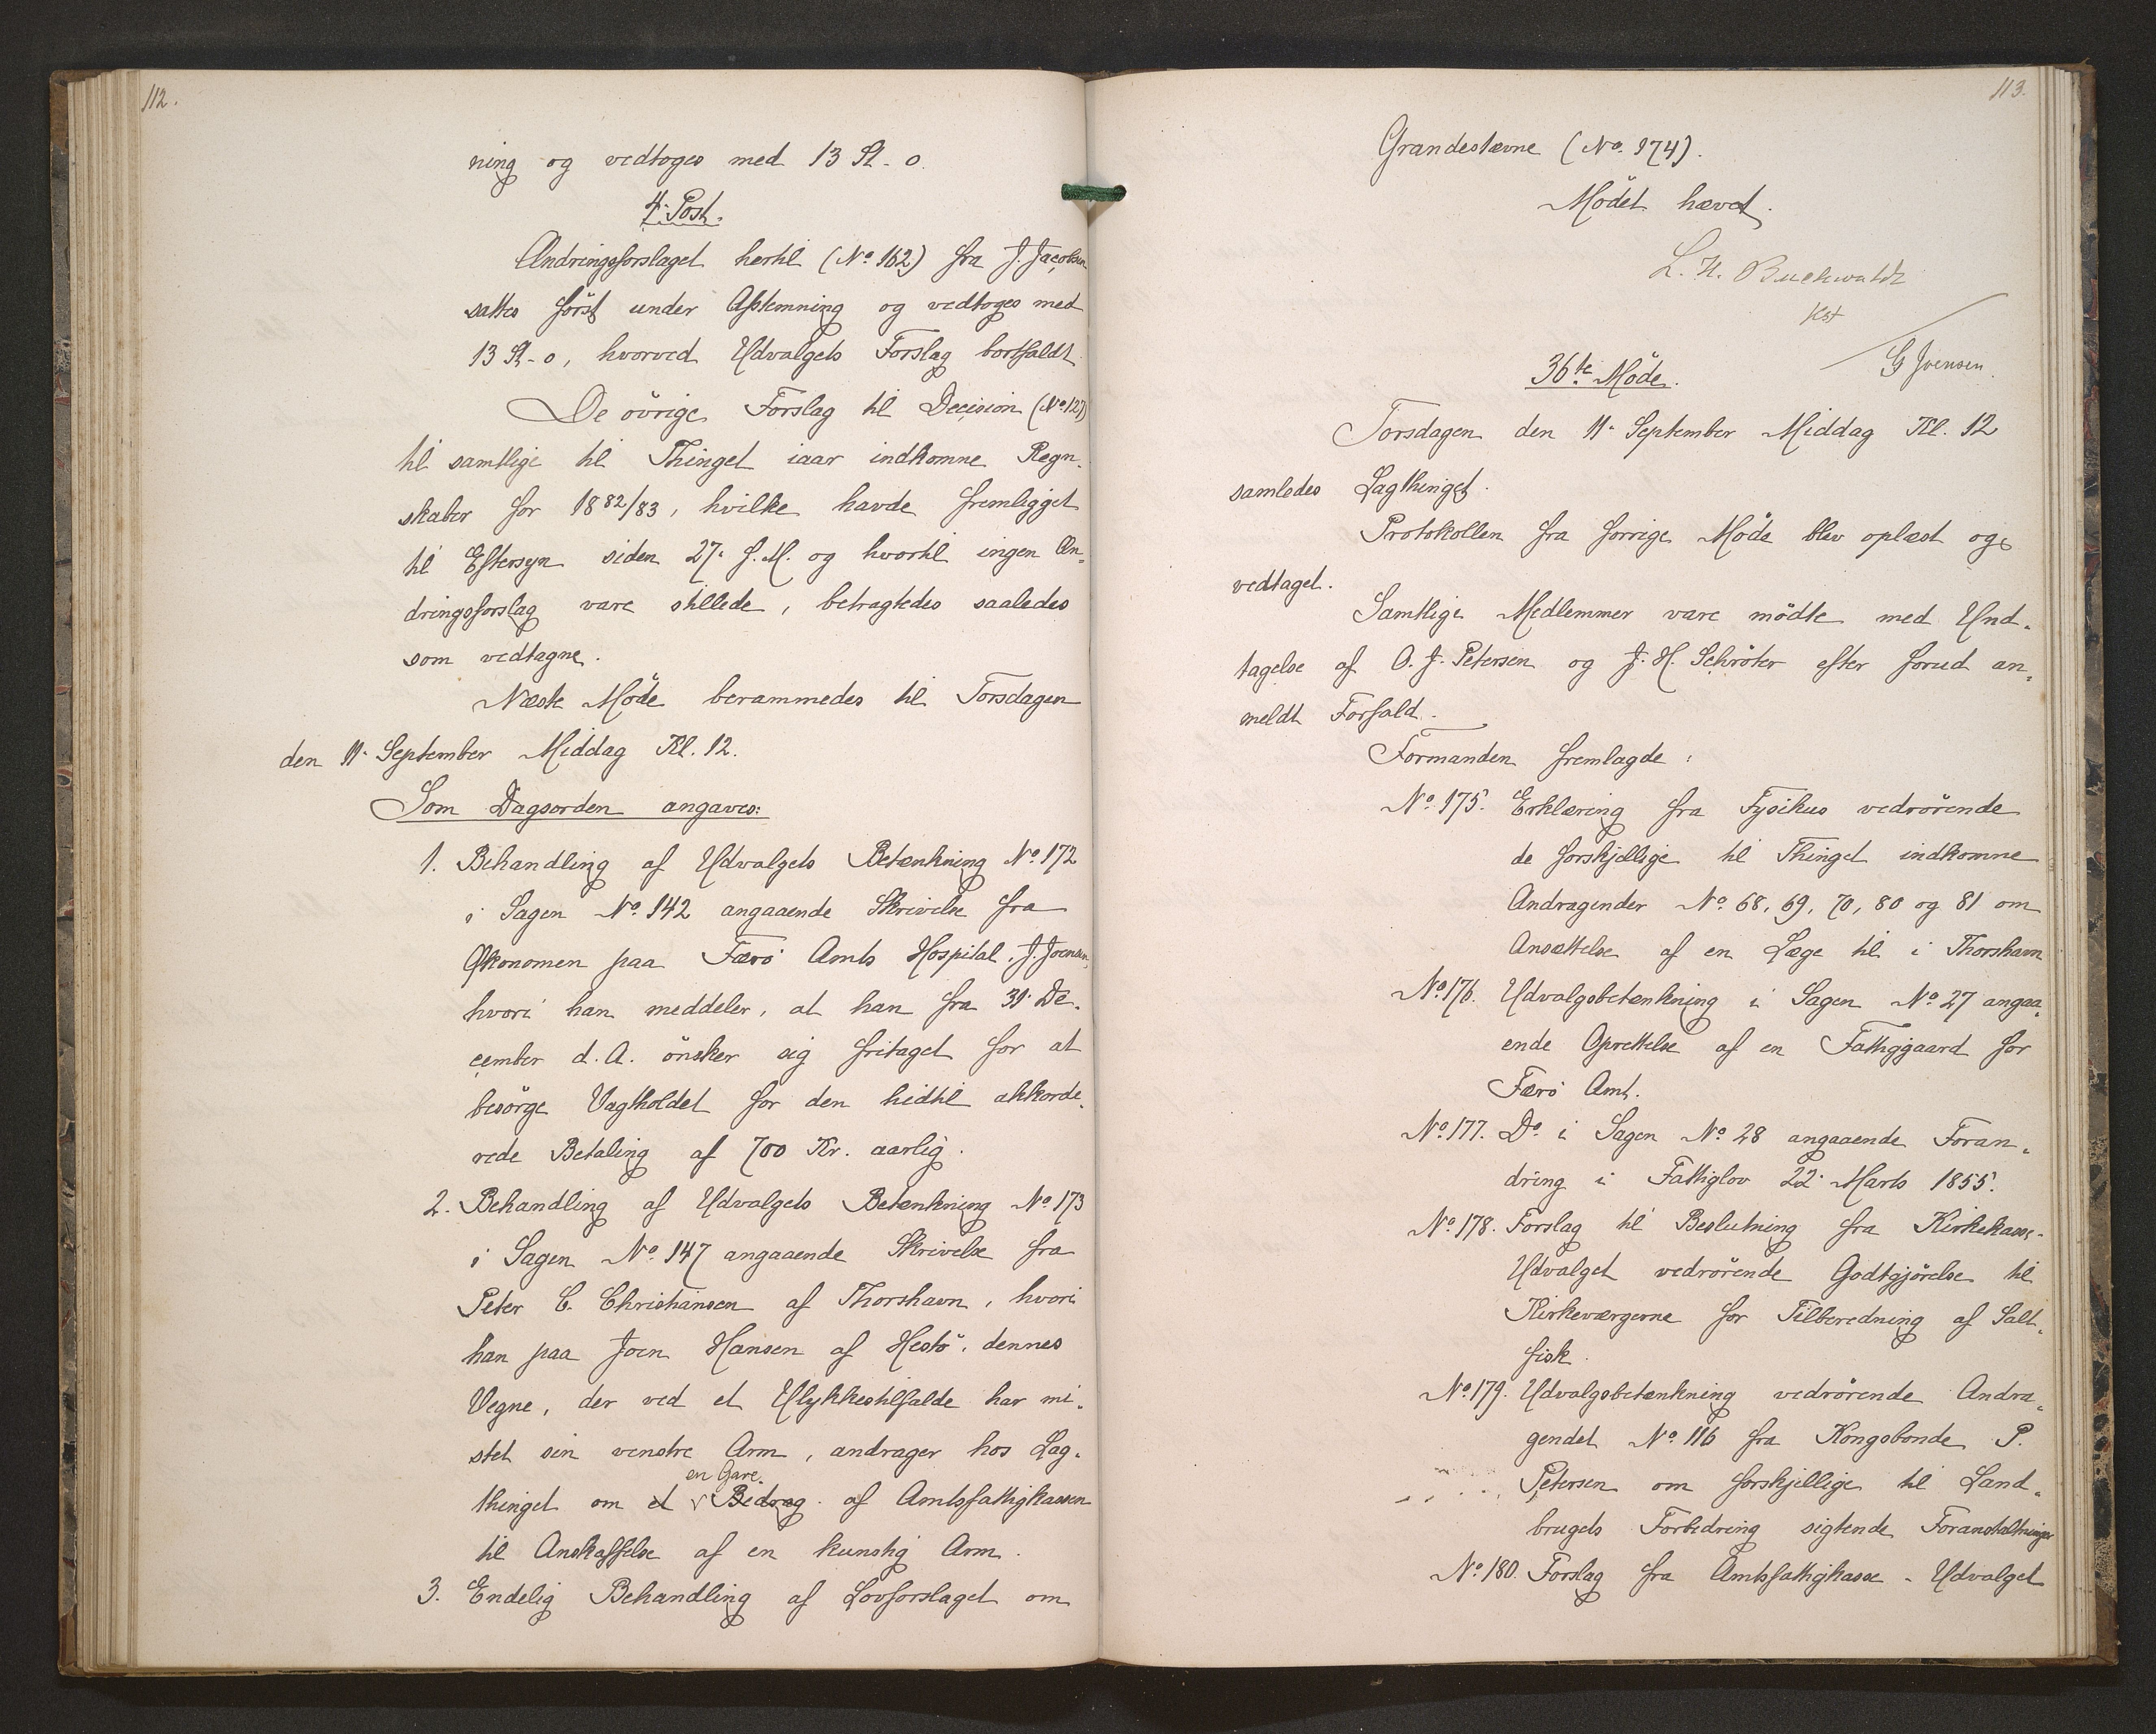 112.
ning og vedtoges med 13 St - 0.
4. Post.
Ændringsforslaget hertil (No 162) fra J. Jacobsen
sattes først under Afstemning og vedtoges med
13 St - 0, hvorved Udvalgets Forslag bortfaldt.
De övrige Forslag til Decision (No 127)
til samtlige til Thinget iaar indkomne Regn-
skaber for 1882/83, hvilke havde fremligget
til Eftersyn siden 27. f. M. og hvortil ingen Æn-
dringsforslag vare stillede, betragtedes saaledes
som vedtagne.
Næste Möde berammedes til Torsdagen
den 11. September Middag Kl. 12.
Som Dagsorden angaves:
1. Behandling af Udvalgets Betænkning No 172
i Sagen No 142 angaaende Skrivelse fra
Økonomen paa Færö Amts Hospital, J. Joensen,
hvori han meddeler, at han fra 31. De-
cember d. A. önsker sig fritaget for at
besörge Vagtholdet for den hidtil akkorde-
rede Betaling af 700 Kr. aarlig.
2. Behandling af Udvalgets Betænkning No 173
i Sagen No 147 angaaende Skrivelse fra
Peter C. Christiansen af Thorshavn, hvori
han paa Joen Hansen af Hestö, dennes
Vegne, der ved et Ulykkestilfælde har mi-
stet sin venstre Arm, andrager hos Lag-
en Gave
thinget om et Bedrag af Amtsfattigkassen
til Anskaffelse af en kunstig Arm.
3. Endelig Behandling af Lovforslaget om
113.
Grandestævne (No 174).
Mödet hævet.
L. H. Buchwaldt
Kst
G Joensen.
36te Möde.
Torsdagen den 11. September Middag Kl. 12
samledes Lagthinget.
Protokollen fra forrige Möde blev oplæst og
vedtaget.
Samtlige Medlemmer vare mödte med Und-
tagelse af O. J. Petersen og J. H. Schröter efter forud an-
meldt Forfald.
Formanden fremlagde:
No 175. Erklæring fra Fysikus vedrörende
de forskjellige til Thinget indkomne
Andragender No 68, 69, 70, 80 og 81 om
Ansættelse af en Læge til i Thorshavn
No 176. Udvalgsbetænkning i Sagen No 27 angaa-
ende Oprettelse af en Fattiggaard for
Færö Amt.
No 177. Do i Sagen No 28 angaaende Foran-
dring i Fattiglov 22. Marts 1855.
No 178. Forslag til Beslutning fra Kirkekasse-
Udvalget vedrörende Godtgjörelse til
Kirkeværgerne for Tilberedning af Salt-
fisk.
No 179. Udvalgsbetænkning vedrörende Andra-
gendet No 116 fra Kongsbonde P.
Petersen om forskjellige til Land-
brugets Forbedring sigtende Foranstaltninger
No 180. Forslag fra Amtsfattigkasse-Udvalget